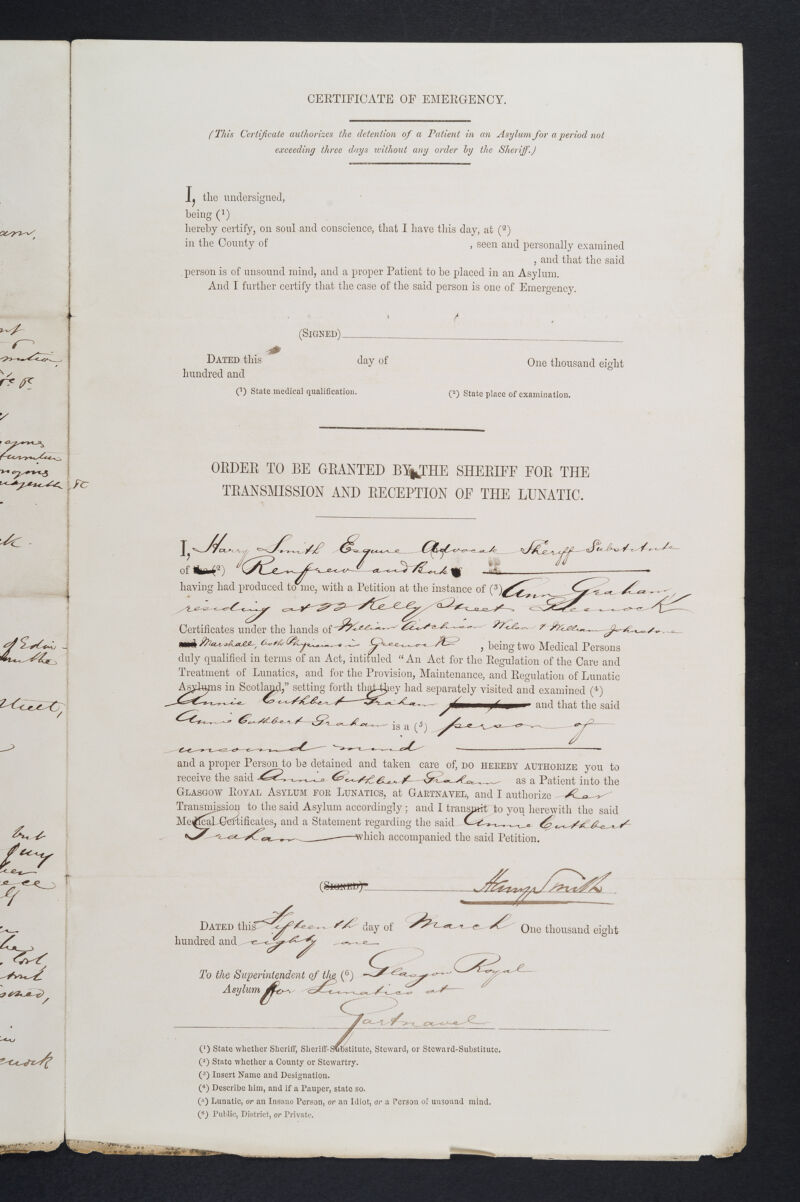 CERTIFICATE OF EMERGENCY.
(This Certificate authorizes the detention of a Patient in an Asylum for a period not
exceeding three days without any order by the Sheriff.)
I, the undersigned,
being (¹)
hereby certify, on soul and conscience, that I have this day, at (²)
in the County of , seen and personally examined
, and that the said
person is of unsound mind, and a proper Patient to be placed in an Asylum.
And I further certify that the case of the said person is one of Emergency.
(SIGNED)
DATED this day of One thousand eight
hundred and
(¹) State medical qualification. (²) State place of examination.
ORDER TO BE GRANTED BY THE SHERIFF FOR THE
TRANSMISSION AND RECEPTION OF THE LUNATIC.
I, Harry Smith Esquire Advocate Sheriff Substitute
of the (²) Renfrew and Bute
having had produced to me, with a Petition at the instance of (³) Ann Graham,
residing at 22 Kelly Street Greenock
Certificates under the hands of William Aitchison Wilson & William Johnstone
Marshall, both Physicians in Greenock , being two Medical Persons
duly qualified in terms of an Act, intituled "An Act for the Regulation of the Care and
Treatment of Lunatics, and for the Provision, Maintenance, and Regulation of Lunatic
Asylums in Scotland," setting forth that they had separately visited and examined (⁴)
Annie Cuthbert Graham and that the said
Annie Cuthbert Graham is a (⁵) person of
unsound mind
and a proper Person to be detained and taken care of, DO HEREBY AUTHORIZE you to
receive the said Annie Cuthbert Graham as a Patient into the
GLASGOW ROYAL ASYLUM FOR LUNATICS, AT GARTNAVEL, and I authorize her
Transmission to the said Asylum accordingly; and I transmit to you herewith the said
Medical Certificates, and a Statement regarding the said Annie Cuthbert
Graham which accompanied the said Petition.
(SIGNED) Harry Smith
DATED this Fifteenth day of March One thousand eight
hundred and eighty one
To the Superintendent of the (⁶) Glasgow Royal
Asylum for Lunatics at
Gartnavel
(¹) State whether Sheriff, Sheriff-Substitute, Steward, or Steward-Substitute.
(²) State whether a County or Stewartry.
(³) Insert Name and Designation.
(⁴) Describe him, and if a Pauper, state so.
(⁵) Lunatic, or an Insane Person, or an Idiot, or a Person of unsound mind.
(⁶) Public, District, or Private.